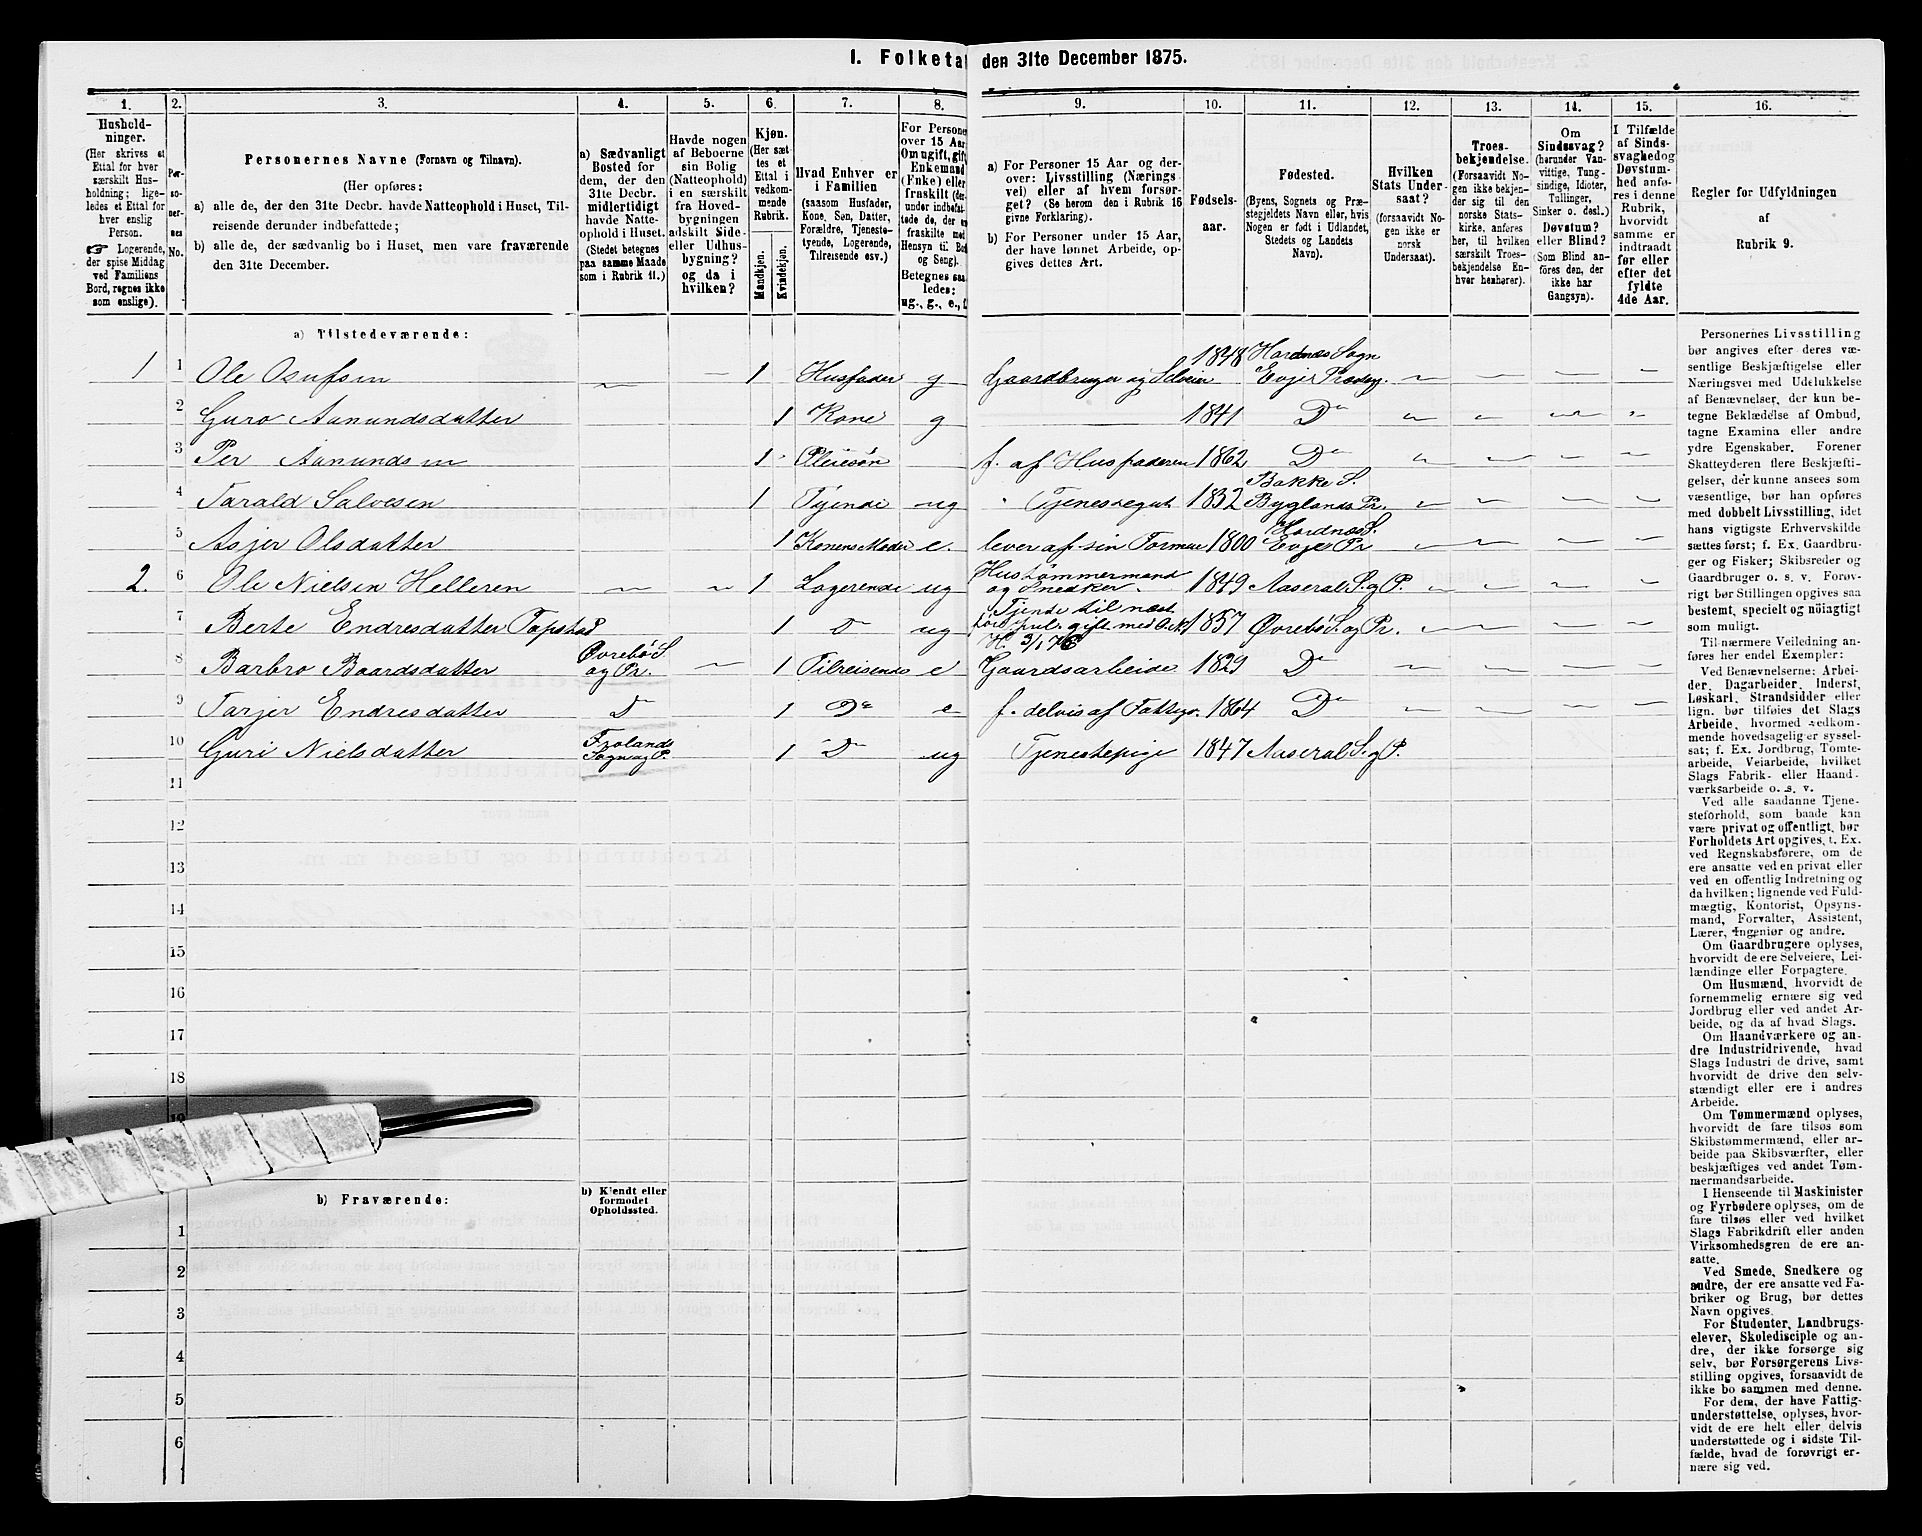 I. Folketa den 31te December 1875.
1. 2. 3. 4. 5. 6. 7. 8. 9. 10. 11. 12. 13. 14. 15. 16.
Hushold-
ninger.
(Her skrives et
Ettal for hver
særskilt Hus-
holdning; lige-
ledes et Ettal for
hver enslig
Person.
☞ Logerende,
der spise Middag
ved Familiens
Bord, regnes ikke
som enslige).
Per-
so-
ner-
nes
No.
Personernes Navne (Fornavn og Tilnavn).
(Her opføres:
a) alle de, der den 31te Decbr. havde Natteophold i Huset, Til-
reisende derunder indbefattede;
b) alle de, der sædvanlig bo i Huset, men vare fraværende
den 31te December.
a) Sædvanligt
Bosted for
dem, der den
31te Decbr.
midlertidigt
havde Natte-
ophold i Huset.
(Stedet betegnes
paa samme Maade
som i Rubrik 11.)
Havde nogen
af Beboerne
sin Bolig
(Natteophold)
i en særskilt
fra Hoved-
bygningen
adskilt Side-
eller Udhus-
bygning?
og da i
hvilken?
Kjøn.
(Her sæt-
tes et
Ettal i
vedkom-
mende
Rubrik.
Mandkjøn.
Kvindekjøn.
Hvad Enhver er
i Familien
(saasom Husfader,
Kone, Søn, Datter,
Forældre, Tjeneste-
tyende, Logerende,
Tilreisende osv.)
For Persone
over 15 Aar
Om ugift, gift
Enkemand
(Enke) eller
fraskilt (der-
under indbefat-
tede de, der er
fraskilte med
Hensyn til Bo
og Seng).
Betegnes saa
ledes:
ug., g., e., f
a) For Personer 15 Aar og der-
over: Livsstilling (Nærings-
vei) eller af hvem forsør-
get? (Se herom den i Rubrik 16
givne Forklaring).
b) For Personer under 15 Aar,
der have lønnet Arbeide, op-
gives dettes Art.
Fødsels-
aar.
Fødested.
(Byens, Sognets og Præ-
stegjeldets Navn eller, hvis
Nogen er født i Udlandet,
Stedets og Landets
Navn).
Hvilken
Stats Under-
saat?
(forsaavidt No-
gen ikke er
norsk
Undersaat).
Troes-
bekjendelse.
(Forsaavidt No-
gen ikke bekjen-
der sig til den
norske Stats-
kirke, anføres
her, til hvilken
særskilt Troes-
bekjendelse En-
hver henhører).
Om
Sindssvag?
(herunder Van-
vittige, Tung-
sindige, Idioter,
Tullinger,
Sinker o. desl.)
Døvstum?
eller Blind?
(Som Blind an-
føres den, der
ikke har
Gangsyn).
I Tilfælde
af Sinds-
svaghed og
Døvstum-
hed anfø-
res i denne
Rubrik,
hvorvidt
samme er
indtraadt
før eller
efter det
fyldte
4de Aar.
Regler for Udfyldningen
af
Rubrik 9.
a) Tilstedeværende:
1 1 Ole Osufsen 1 Husfader g Gaardbruger og Selveier 1848 Hordnæs Sogn Evje Præstg.
2 Guro Aanundsdatter 1 Kone g 1841 Do
3 Per Aanundsen 1 Pleiesøn f. af Husfaderen 1862 Do
4 Tarald Salvesen 1 Tyende ug Tjenestegut 1852 Bakke S. Byglands Pr.
5 Asjer Olsdatter 1 Konens Moder e. lever af sin Formue 1800 Hordnæs S. Evje Pr
2. 6 Ole Nielsen Helleren 1 Logerende ug Hustømmermand og Snedker. 1849 Aaseral S. og P.
7 Berte Endresdatter Tapstad 1 Do ug Tjende til næst gift med O.N. H. 3/1 76 1857 Øvrebø S. og Pr.
8 Barbro Baardsdatter Øvrebø S. og Pr. 1 Tilreisende e Gaardsarbeide 1829 Do
9 Tarjer Endresdatter Do 1 Do e f. delvis af Fattigv. 1864 Do
10 Guri Nielsdatter Frolands Sogn og P. 1 Do ug Tjenestepige 1847 Aaseral S. og P.
11
12
13
14
15
16
17
18
19
b) Fraværende:
b) Kjendt eller
formodet
Opholdssted.
1
2
3
4
5
6
Personernes Livsstilling
bør angives efter deres væ-
sentlige Beskjæftigelse eller
Næringsvei med Udelukkelse
af Benævnelser, der kun be-
tegne Beklædelse af Ombud,
tagne Examina eller andre
ydre Egenskaber. Forener
Skatteyderen flere Beskjæfti-
gelser, der kunne ansees som
væsentlige, bør han opføres
med dobbelt Livsstilling, idet
hans vigtigste Erhvervskilde
sættes først; f. Ex. Gaardbru-
ger og Fisker; Skibsreder og
Gaardbruger o. s. v. Forøv-
rigt bør Stillingen opgives saa
bestemt, specielt og nöiagtigt
som muligt.
Til nærmere Veiledning an-
føres her endel Exempler:
Ved Benævnelserne: Arbei-
der, Dagarbeider, Inderst,
Løskarl, Strandsidder eller
lign. bør tilføies det Slags
Arbeide, hvormed vedkom-
mende hovedsagelig er syssel-
sat; f. Ex. Jordbrug, Tomte-
arbeide, Veiarbeide, hvilket
Slags Fabrik- eller Haand-
værksarbeide o. s. v.
Ved alle saadanne Tjene-
steforhold, som baade kan
være privat og offentligt, bør
Forholdets Art opgives, t. Ex.
ved Regnskabsførere, om de
ere ansatte ved en privat eller
ved en offentlig Indretning og
da hvilken; lignende ved Fuld-
mægtig, Kontorist, Opsyns-
mand, Forvalter, Assistent,
Lærer, Ingeniør og andre.
Om Gaardbrugere oplyses,
hvorvidt de ere Selveiere, Lei-
lændinge eller Forpagtere.
Om Husmænd, hvorvidt de
fornemmelig ernære sig ved
Jordbrug eller ved andet Ar-
beide, og da af hvad Slags.
Om Haandværkere og an-
dre Industridrivende, hvad
Slags Industri de drive, samt
hvorvidt de drive den selv-
stændigt eller ere i andres
Arbeide.
Om Tømmermænd oplyses,
hvorvidt de fare tilsøs som
Skibstømmermænd, eller ar-
beide paa Skibsværfter, eller
beskjæftiges ved andet Tøm-
mermandsarbeide.
I Henseende til Maskinister
og Fyrbødere oplyses, om de
fare tilsøs eller ved hvilket
Slags Fabrikdrift eller anden
Virksomhedsgren de ere an-
satte.
Ved Smede, Snedkere og
andre, der ere ansatte ved Fa-
briker og Brug, bør dettes
Navn opgives.
For Studenter, Landbrugs-
elever, Skoledisciple og an-
dre, der ikke forsørge sig
selv, bør Forsørgerens Livs-
stilling opgives, forsaavidt de
ikke bo sammen med denne.
For dem, der have Fattig-
understøttelse, oplyses, hvor-
vidt de ere helt eller delvis
understøttede og i sidste Til-
fælde, hvad de forøvrigt er-
nære sig ved.